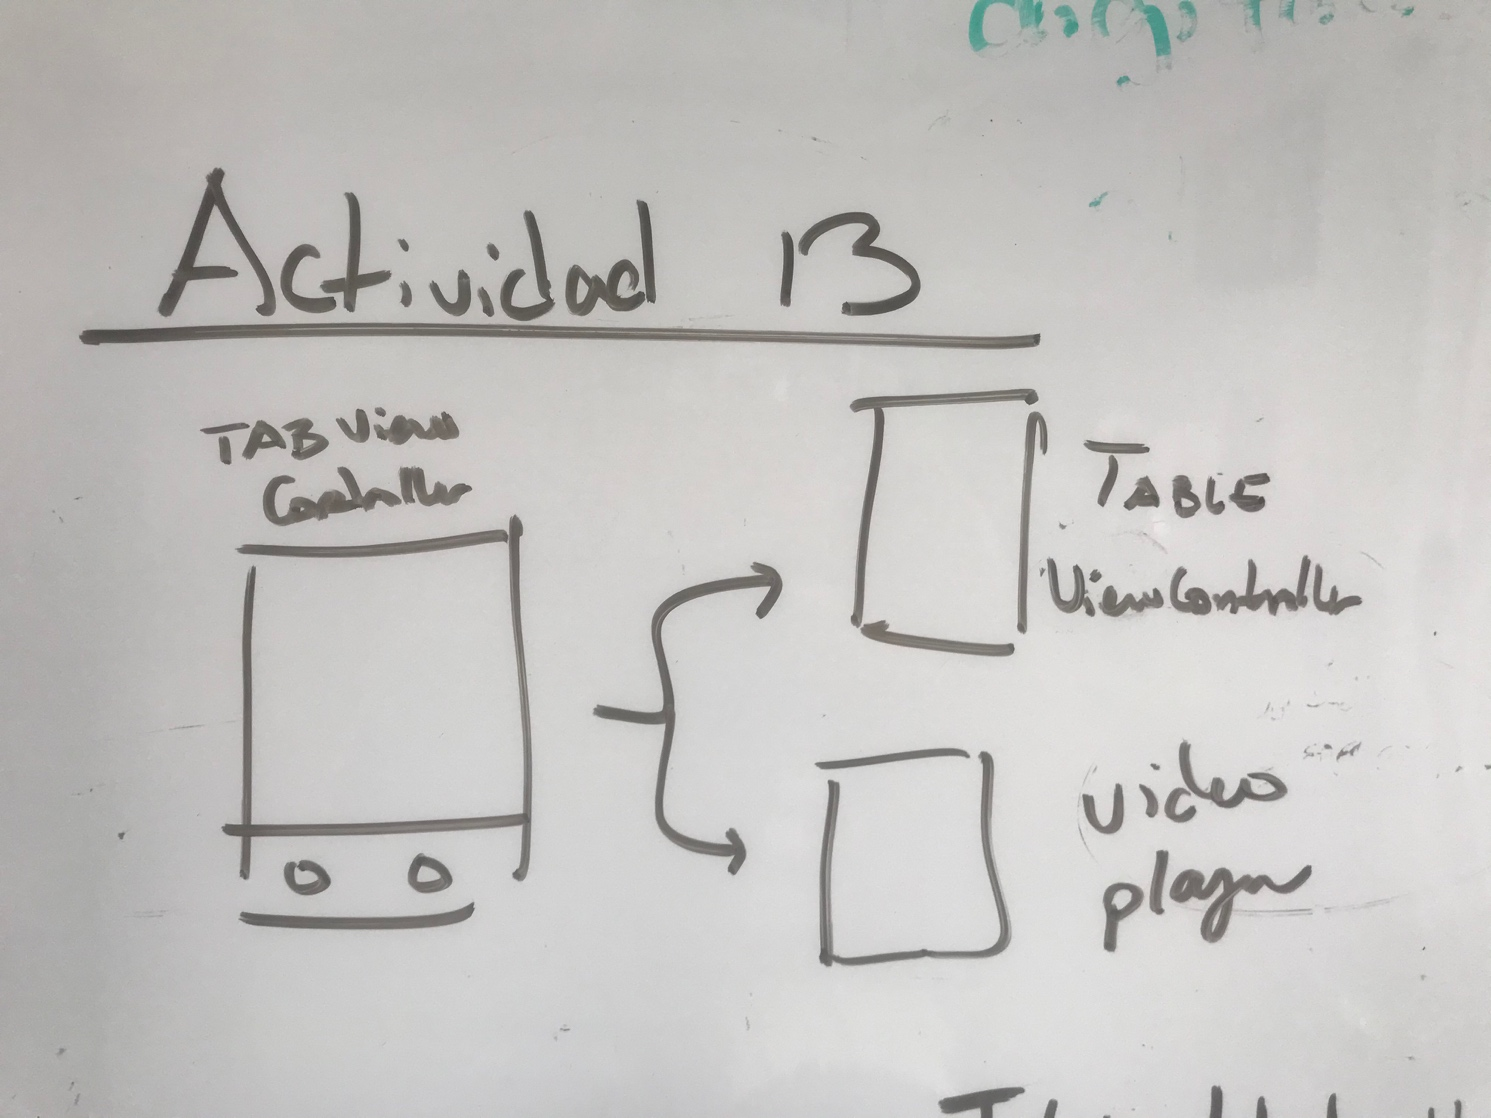 Actividad 13
TAB View
Controller
TABLE
ViewController
video
player